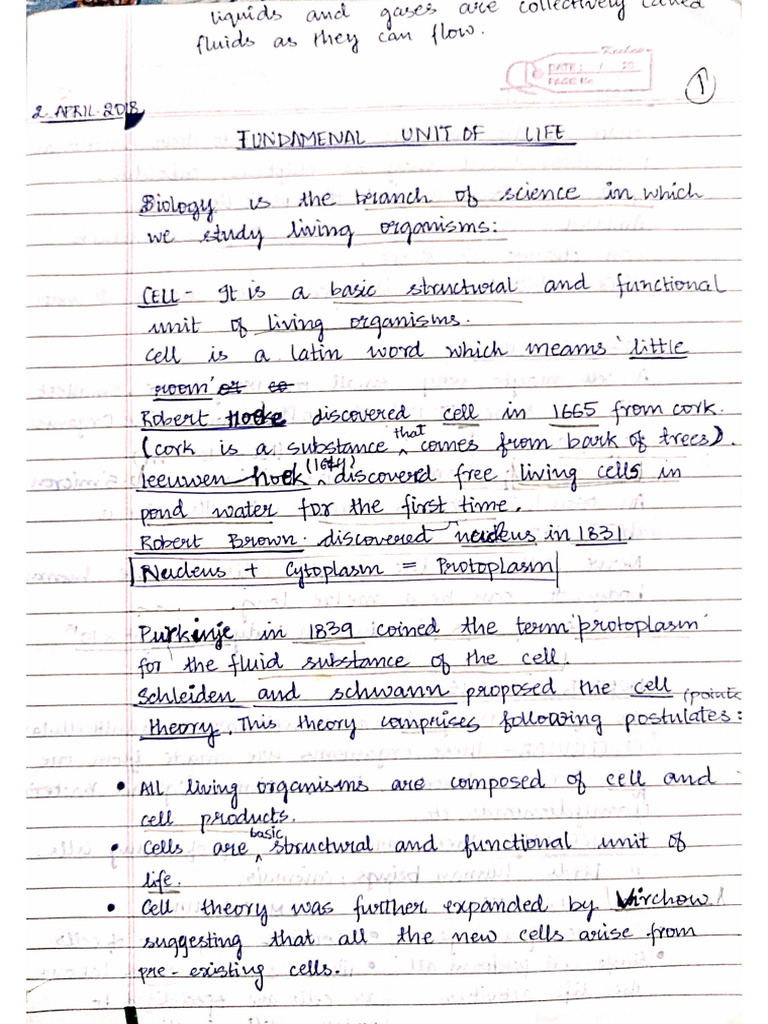 liquids and gases are collectively called
fluids as they can flow.
DATE: / 20
PAGE No
1
2 APRIL 2018
FUNDAMENAL UNIT OF LIFE
Biology is the branch of science in which
we study living organisms:
CELL - It is a basic structural and functional
unit of living organisms.
Cell is a latin word which means 'little
room'
Robert Hooke discovered cell in 1665 from cork.
(cork is a substance that comes from bark of trees).
leeuwen hoek (1674) discovered free living cells in
pond water for the first time.
Robert Brown discovered nucleus in 1831.
Nucleus + Cytoplasm = Protoplasm
Purkinje in 1839 coined the term 'protoplasm'
for the fluid substance of the cell.
Schleiden and schwann proposed the cell
theory. This theory comprises following postulates: (points
• All living organisms are composed of cell and
cell products.
• Cells are basic structural and functional unit of
life.
• Cell theory was further expanded by Virchow
suggesting that all the new cells arise from
pre-existing cells.